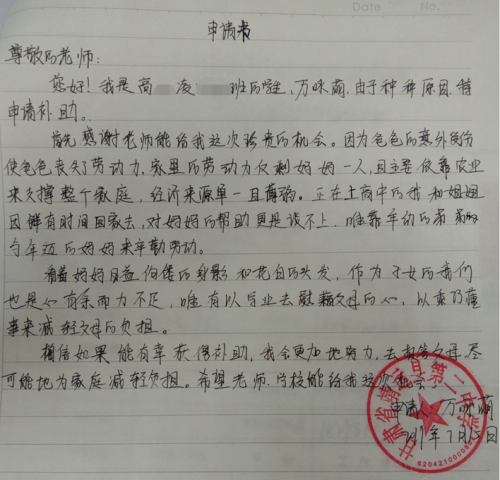 Date No.
申请书
尊敬的老师:
您好!我是高 凌 班的学生,万咏萌.由于种种原因.特
申请补助。
首先感谢老师能给我这次珍贵的机会。因为爸爸的意外身份
使爸爸丧失了劳动力,家里的劳动力仅剩妈妈一人,且主要依靠农业
来支撑整个家庭,经济来源单一且薄弱。正在上高中的我和姐姐
因鲜有时间回家去,对妈妈的帮助更是谈不上.唯靠年的而
与年迈的妈妈来辛勤劳动。
看着妈妈日益佝偻的身影和花白的头发,作为子女的我们
也是心有余而力不足,唯有以学业去慰藉父母的心,以
事来减轻父母的负担。
相信如果能有幸获得补助,我会更加地努力,去 父母.尽
可能地为家庭减轻负担。希望老师.学校能给我这次机会。
申请人:万咏萌
年7月15日
甘肃省靖远县第二中学